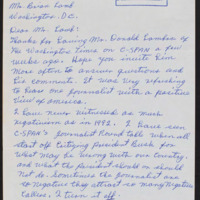 Mr. Brian Lamb
Washington D.C.
Dear Mr. Lamb:
Thanks for having Mr. Donald Lambro of
the Washington Times on C-SPAN a few
weeks ago. Hope you invite him
more often to answer questions and
to comment. It was very refreshing
to hear one journalist with a positive
view of America.
I have never witnessed so much
negativism as in 1992. I have seen
C-SPAN's Journalist Round Table when all
start off critizing President Bush for
what may be wrong with our country,
and what the President should or should
not do. Sometimes the journalist are
so negative they attract so many negative
callers. I turn it off.